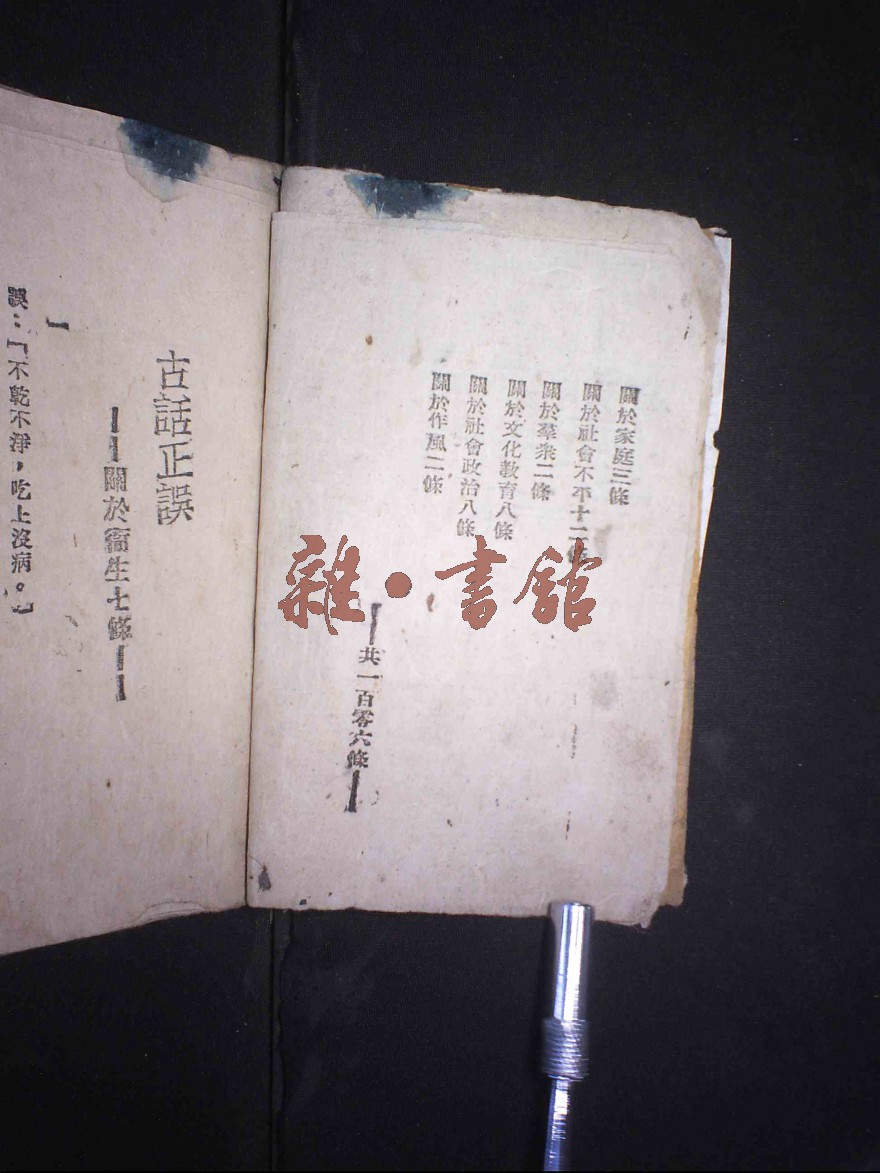 關於家庭三條
關於社會不平十二條
關於羣衆二條
關於文化教育八條
關於社會政治八條
關於作風二條
——共一百零六條——
古話正誤
——關於衞生七條——
一
誤：「不乾不淨，吃上沒病。」
雜·書舘